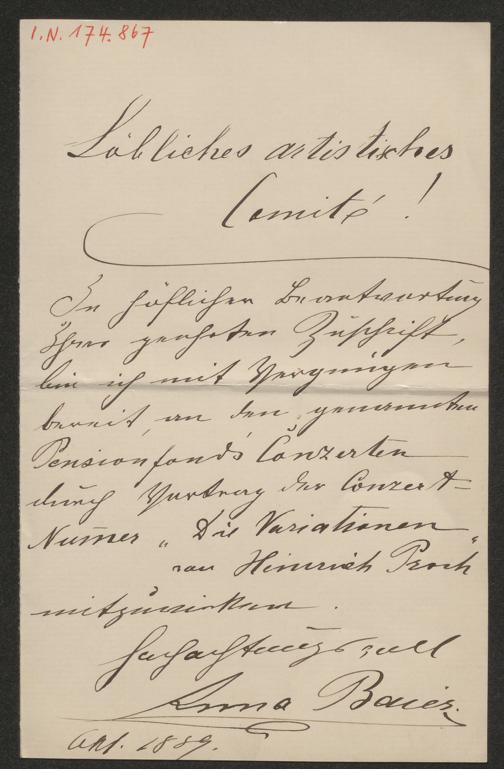 I.N. 174.867
Löbliches artistisches
Comité!
In höflicher Beantwortung
Ihrer geehrten Zuschrift,
bin ich mit Vergnügen
bereit, an den genannten
Pensionfond's Conzerten
durch Vortrag der Conzert-
Num̄er „Die Variationen"
von Heinrich Proch
mitzuwirken.
Hochachtungsvoll
Anna Baier.
Okt. 1889.